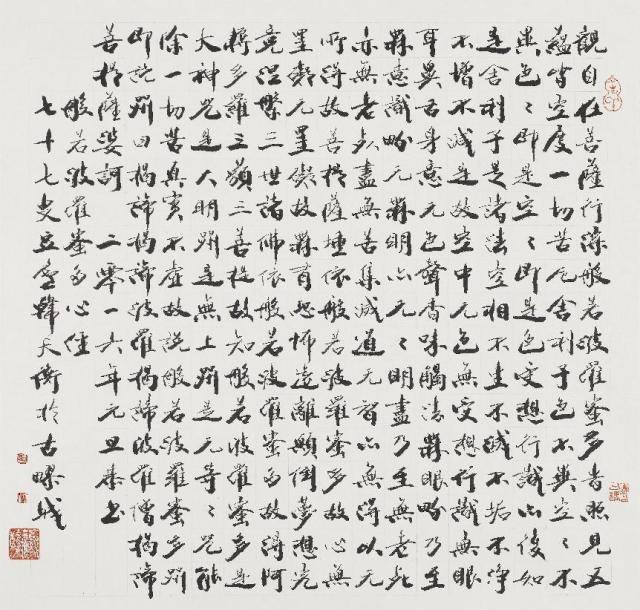 觀自在菩薩行深般若波羅蜜多時照見五
蘊皆空度一切苦厄舍利子色不異空〻不
異色〻即是空〻即是色受想行識亦復如
是舍利子是諸法空相不生不滅不垢不淨
不增不減是故空中无色無受想行識無眼
耳鼻舌身意无色聲香味觸法無眼界乃至
無意識界无無明亦无〻明盡乃至無老死
亦無老死盡無苦集滅道无智亦無得以无
所得故菩提薩埵依般若波羅蜜多故心無
罣礙无罣礙故無有恐怖遠離顛倒夢想究
竟涅槃三世諸佛依般若波羅蜜多故得阿
耨多羅三藐三菩提故知般若波羅蜜多是
大神咒是大明咒是無上咒是无等〻咒能
除一切苦真實不虛故說般若波羅蜜多咒
即說咒曰揭諦揭諦波羅揭諦波羅僧揭諦
菩提薩婆訶 二零一六年元旦恭書
般若波羅蜜多心經
七十七叟豆廬韓天衡於古疁城